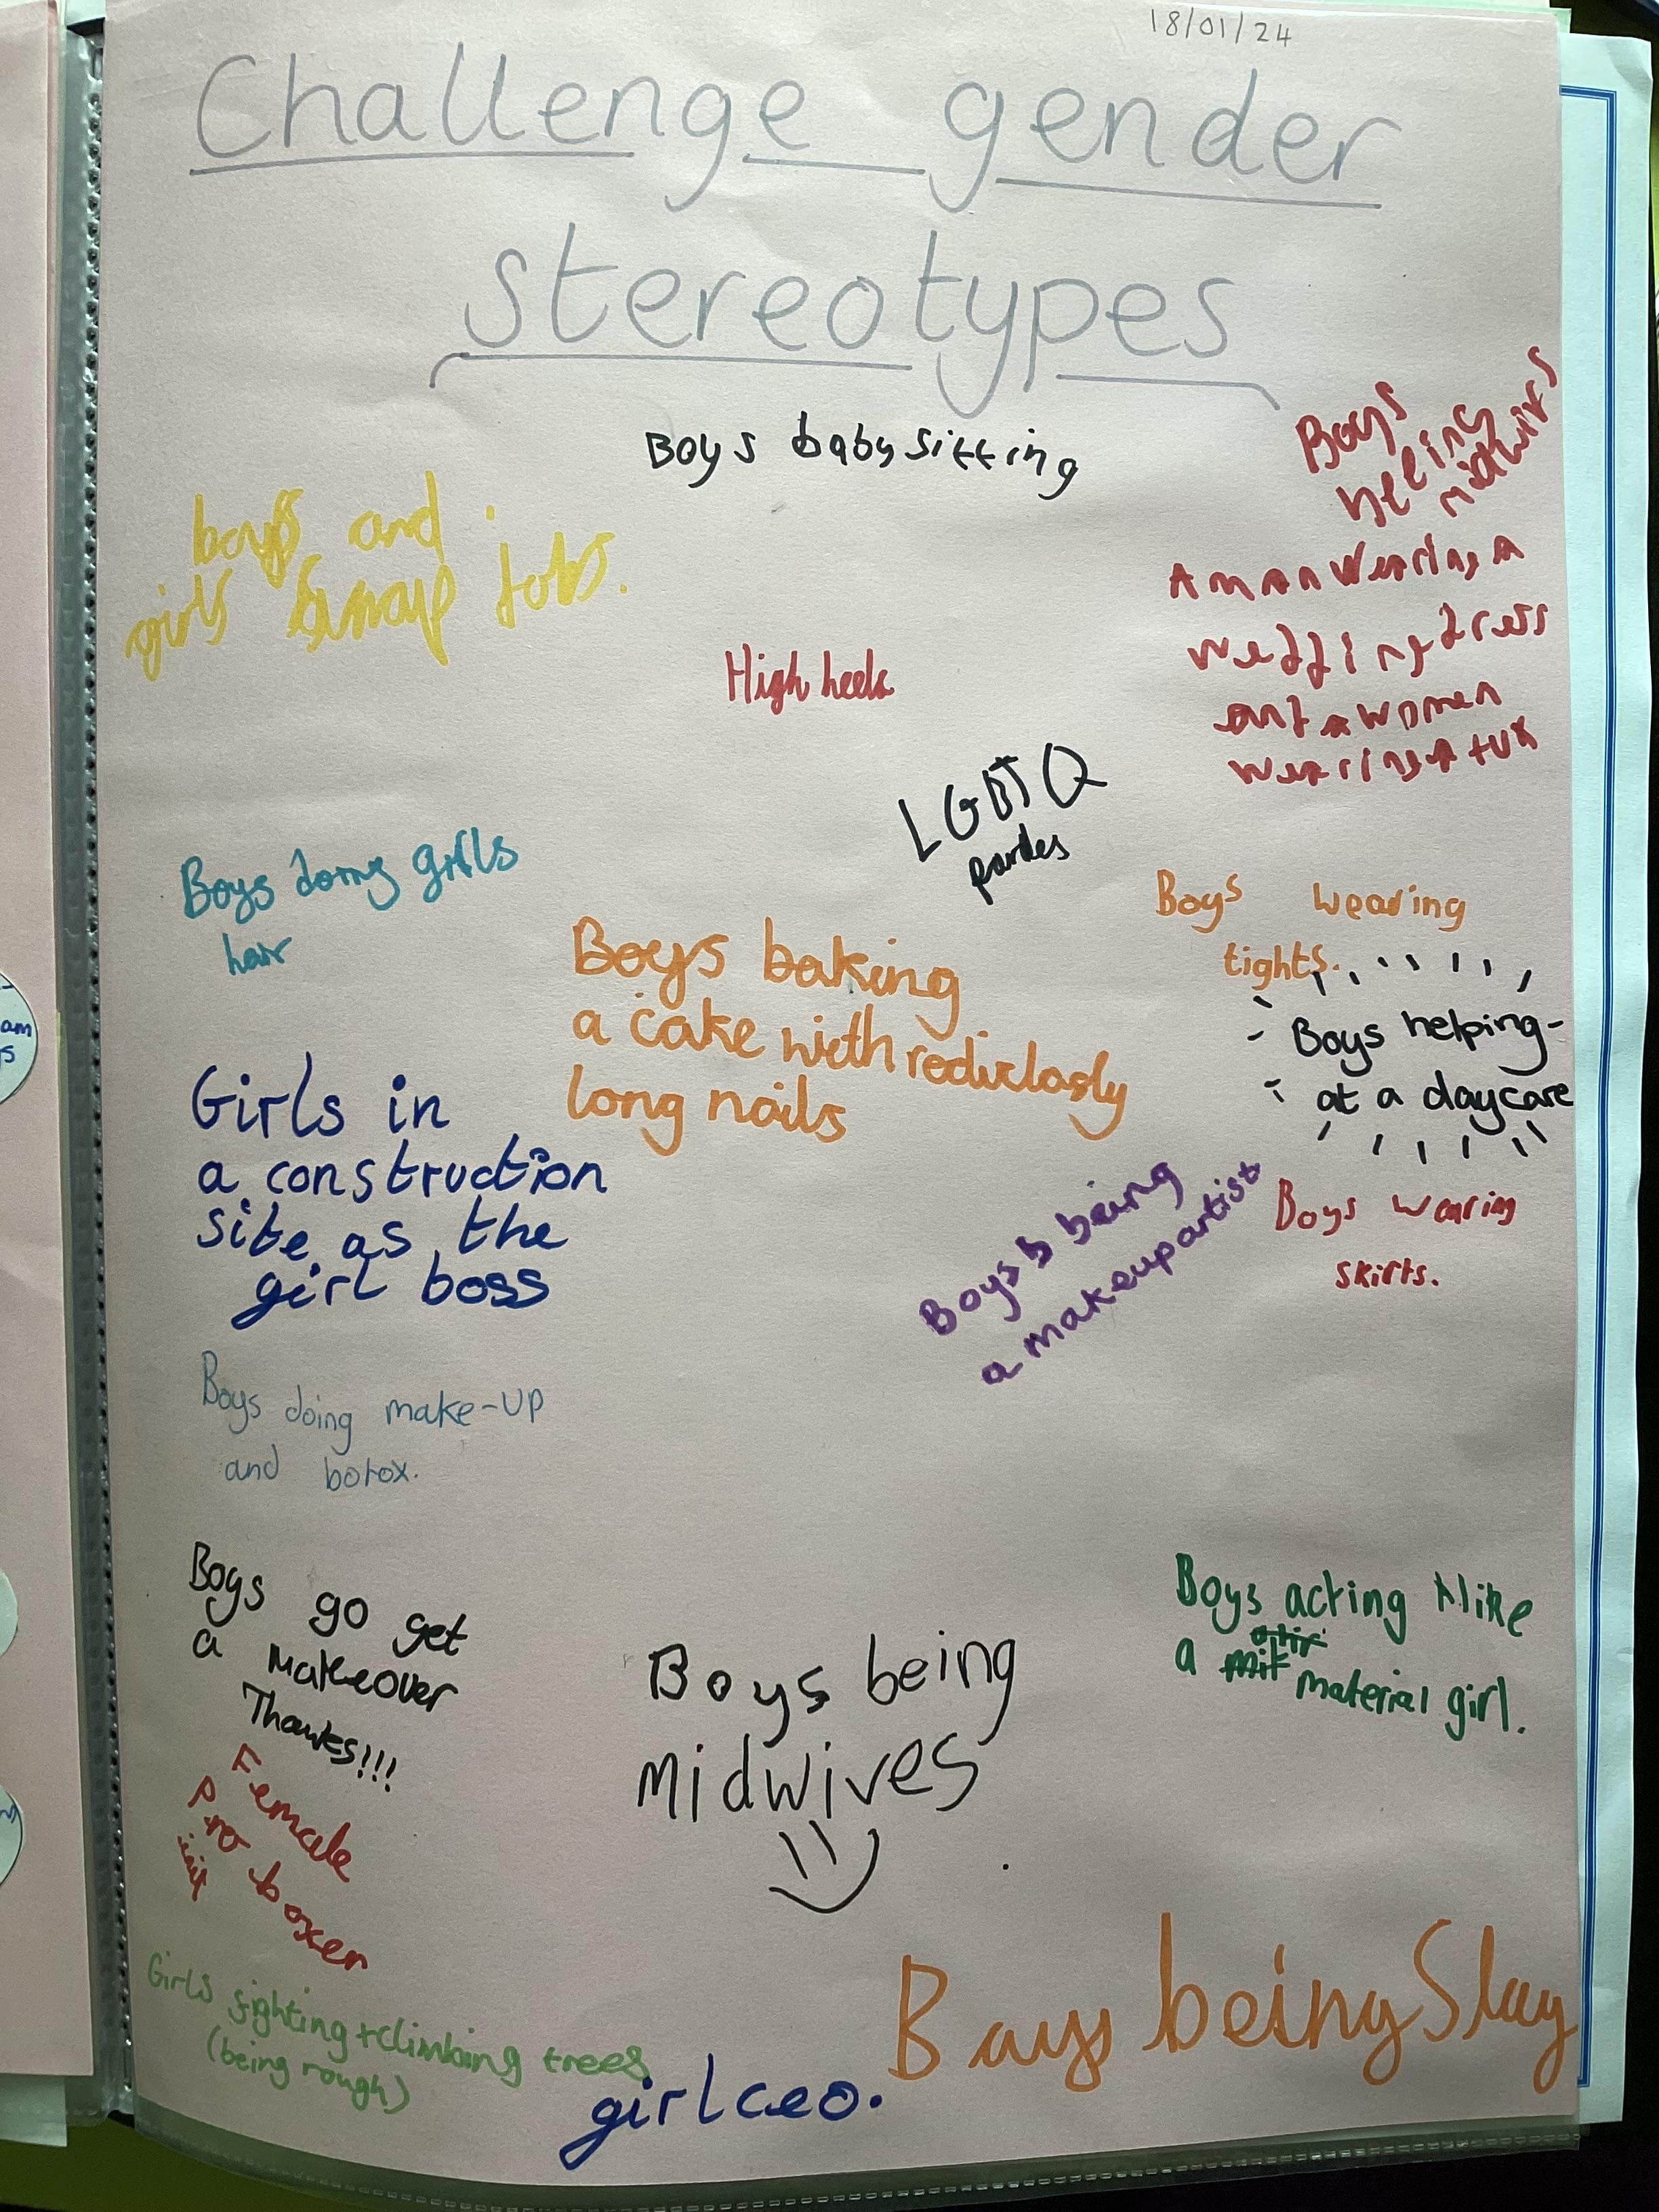 18/01/24
Challenge gender
stereotypes
Boys babysitting
Boys
midwifs
boys and
girls swap jobs.
A man wearing a
wedding dress
and a women
wearing a tux
High heels
LGBTQ
pardes
Boys doing girls
hair
Boys wearing
tights.
Boys baking
a cake with rediclosly
long nails
Boys helping
at a daycare
Girls in
a construction
site as the
girl boss
Boys b being
a makeup artist
Boys wearing
skirts.
Boys doing make-up
and botox.
Boys go get
a makeover
Thanks!!!
Boys acting like
a material girl.
Boys being
midwives
Female
pro boxer
Girls fighting + climbing trees
(being rough)
Boys being Slay
girl ceo.
am
s